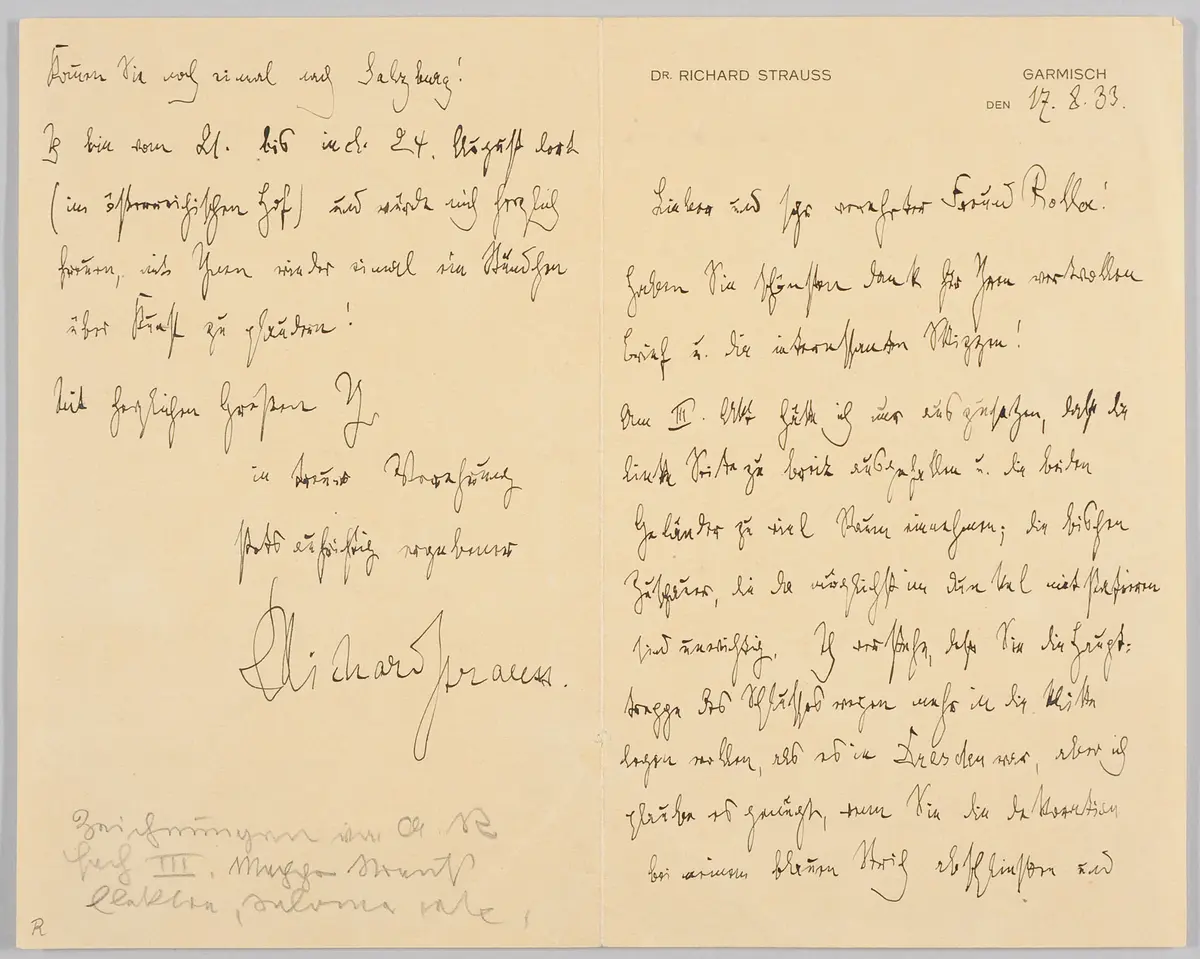 DR. RICHARD STRAUSS
GARMISCH
DEN 17. 8. 33.
Lieber und sehr verehrter Freund Roller!
Haben Sie schönsten Dank für Ihren wertvollen
Brief u. die interessanten Skizzen!
Am III. Akt hätte ich nur auszusetzen, daß die
linke Seite zu breit ausgefallen u. die beiden
Geländer zu viel Raum einnehmen; die bischen
Zuschauer, die da möglichst im Dunkel mit
sind unwichtig. Ich verstehe, daß Sie die Haupt=
treppe des Schlusses wegen mehr in die Mitte
legen wollen, als es in Dresden war, aber ich
glaube es genügt, wenn Sie die Dekoration
bei meinem blauen Strich abschließen und
Kommen Sie noch einmal nach Salzburg?
Ich bin vom 21. bis incl. 24. August dort
(im österreichischen Hof) und würde mich herzlich
freuen, mit Ihnen wieder einmal ein Stündchen
über Kunst zu plaudern!
Mit herzlichen Grüßen Ihr
in treuer Verehrung
stets aufrichtig ergebener
Richard Strauss.
Zeichnungen von
III. Mappe Strauß
Elektra, Salome
R